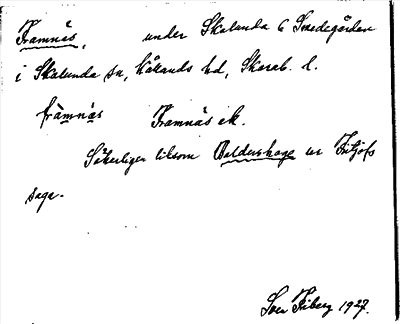 Framnäs, under Skalunda 6 Smedegården
i Skalunda sn, Kålands hd, Skarab. l.
fràmnä̀s Framnäs ek.
Säkerligen liksom Baldershage ur Fritjofs
saga.
Sven Fiberg 1927.